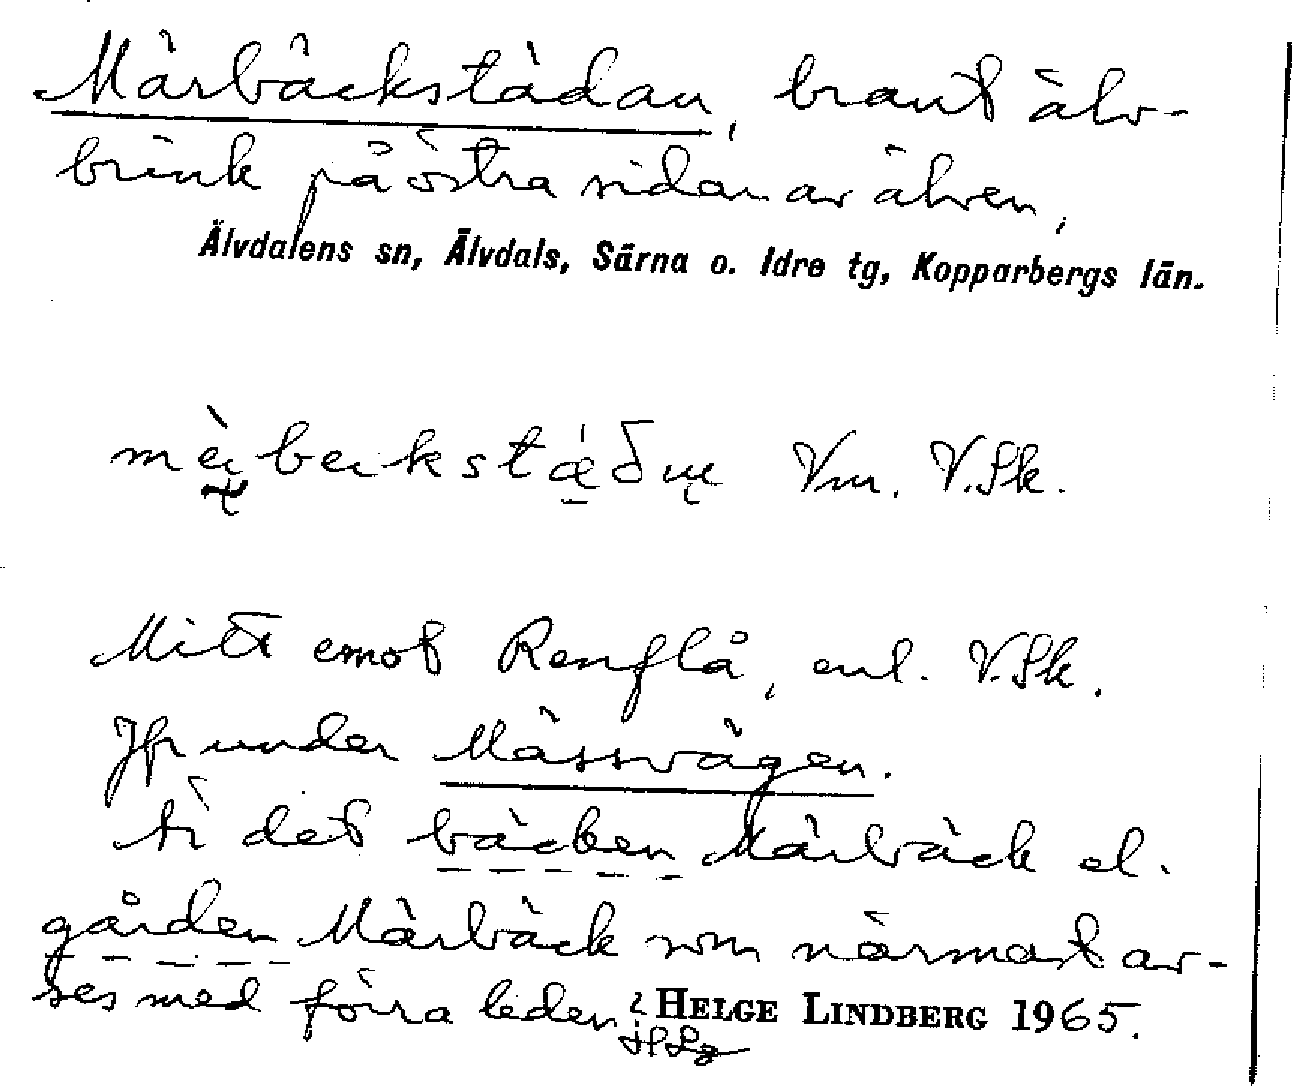 Märbäckstädan, brant älv-
brink på östra sidan av älven,
Älvdalens sn, Älvdals, Särna o. Idre tg, Kopparbergs län.
Vm. V.Sk.
Mitt emot Renflå, enl. V.Sk.
Jfr under Mässvägen.
Är det bäcken Märbäck el.
gården Märbäck som närmast av-
ses med förra leden? HELGE LINDBERG 1965.
HLg